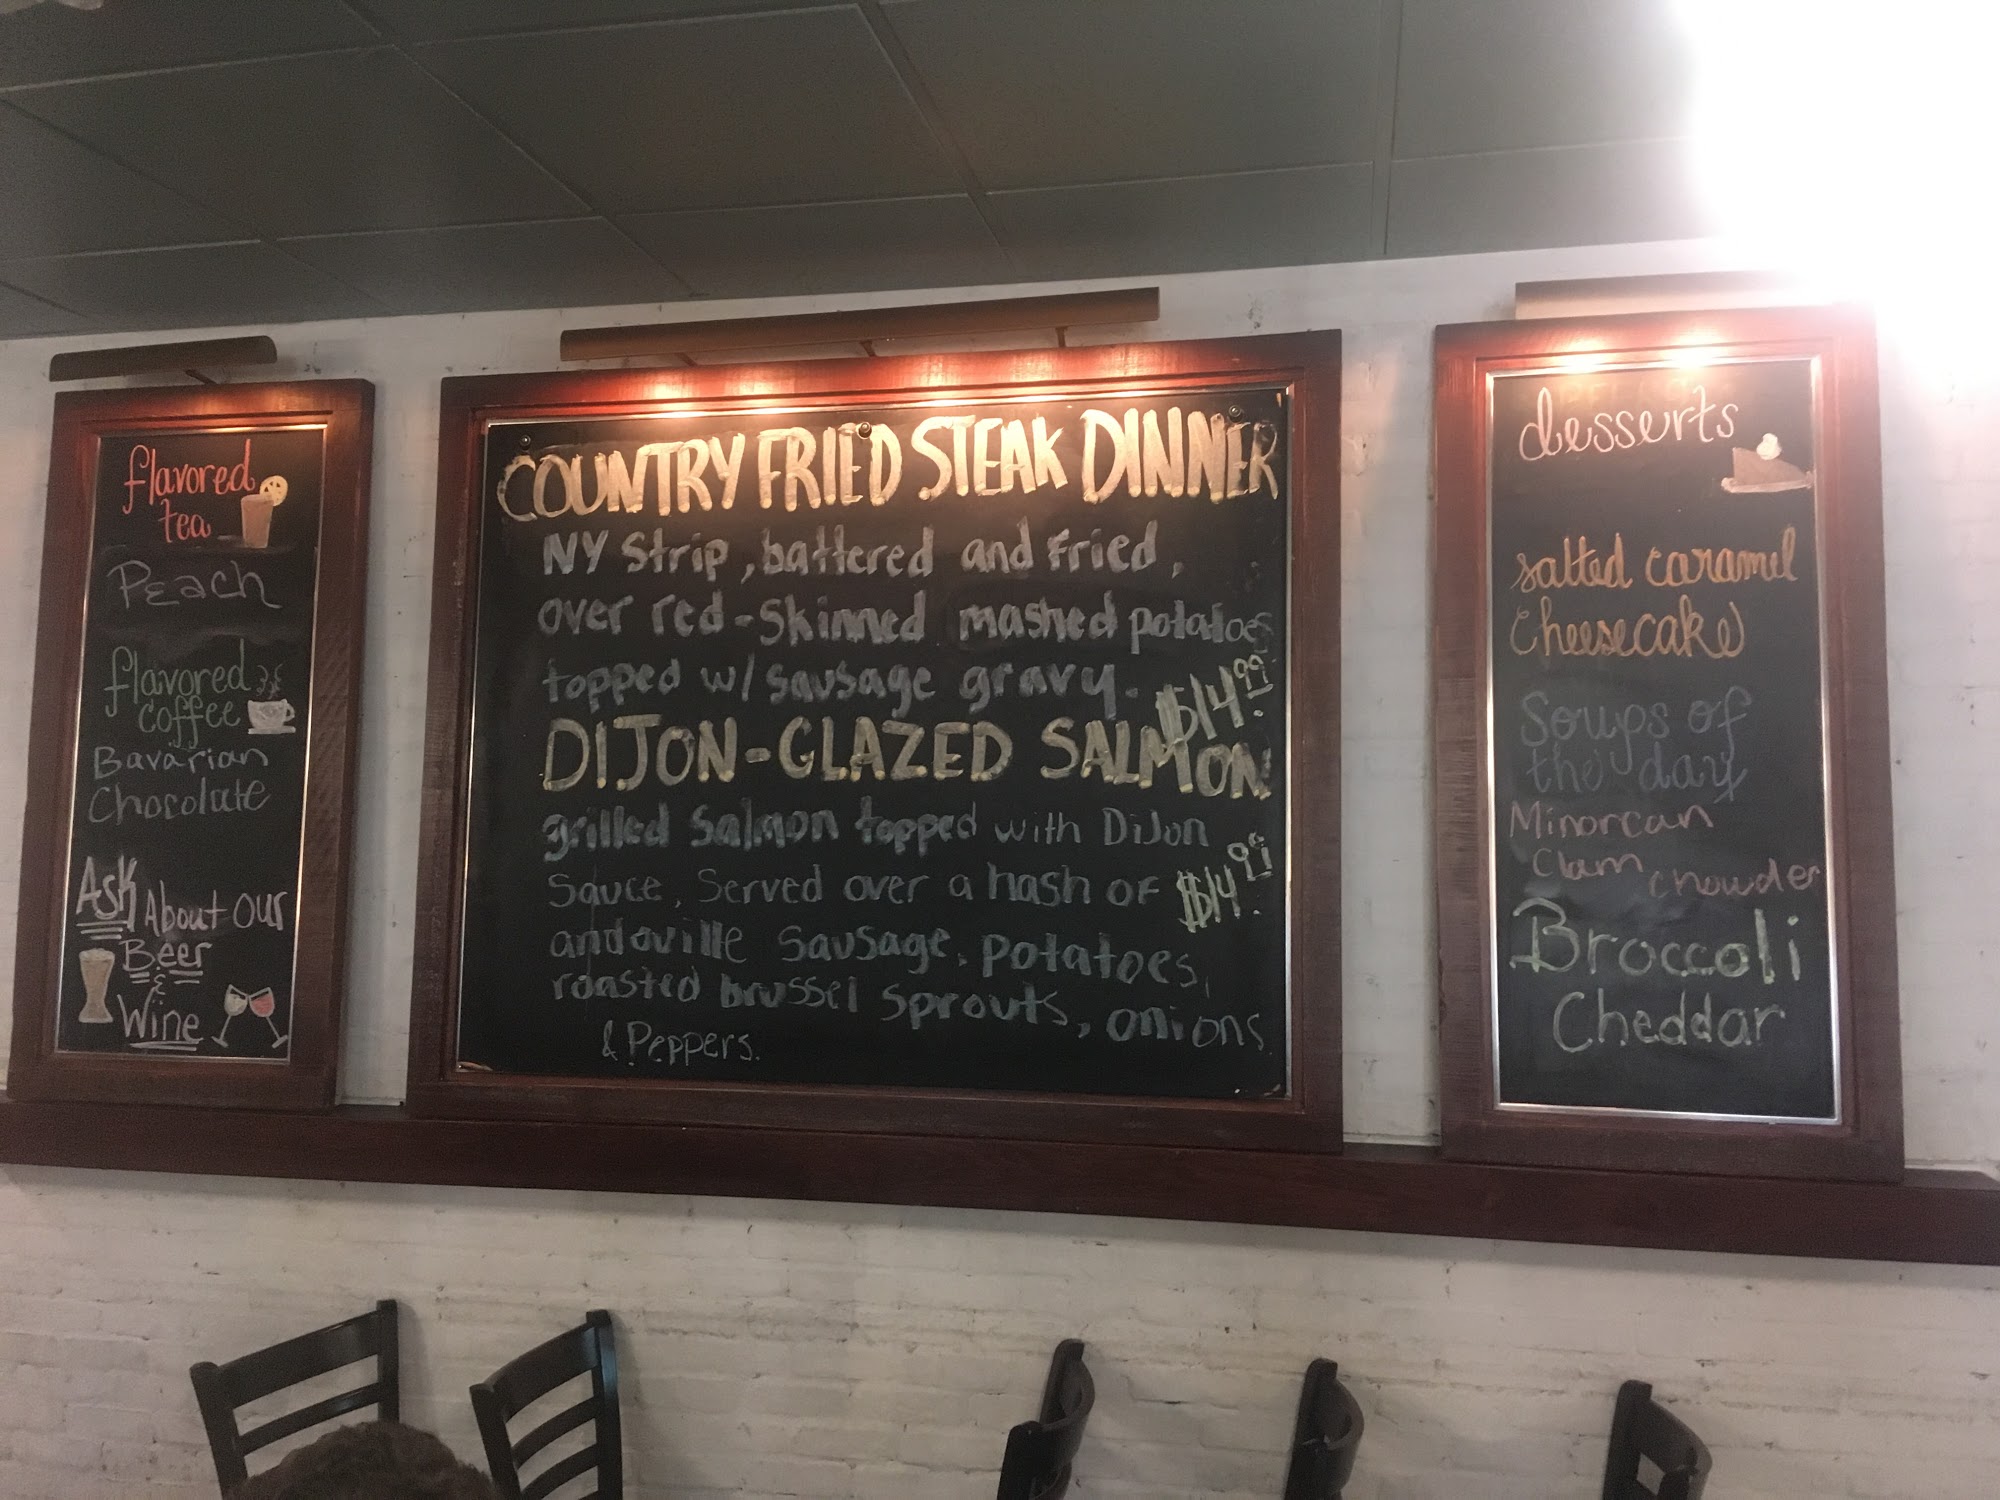 flavored
tea
Peach
flavored
coffee
Bavarian
Chocolate
Ask About our
Beer
&
Wine
COUNTRY FRIED STEAK DINNER
NY Strip, battered and fried,
over red-skinned mashed potatoes
topped w/ sausage gravy. $14.99
DIJON-GLAZED SALMON
grilled salmon topped with Dijon
sauce, served over a hash of $14.99
andoville sausage, potatoes,
roasted brussel sprouts, onions
& Peppers.
desserts
salted caramel
cheesecake
Soups of
the day
Minorcan
Clam chowder
Broccoli
Cheddar